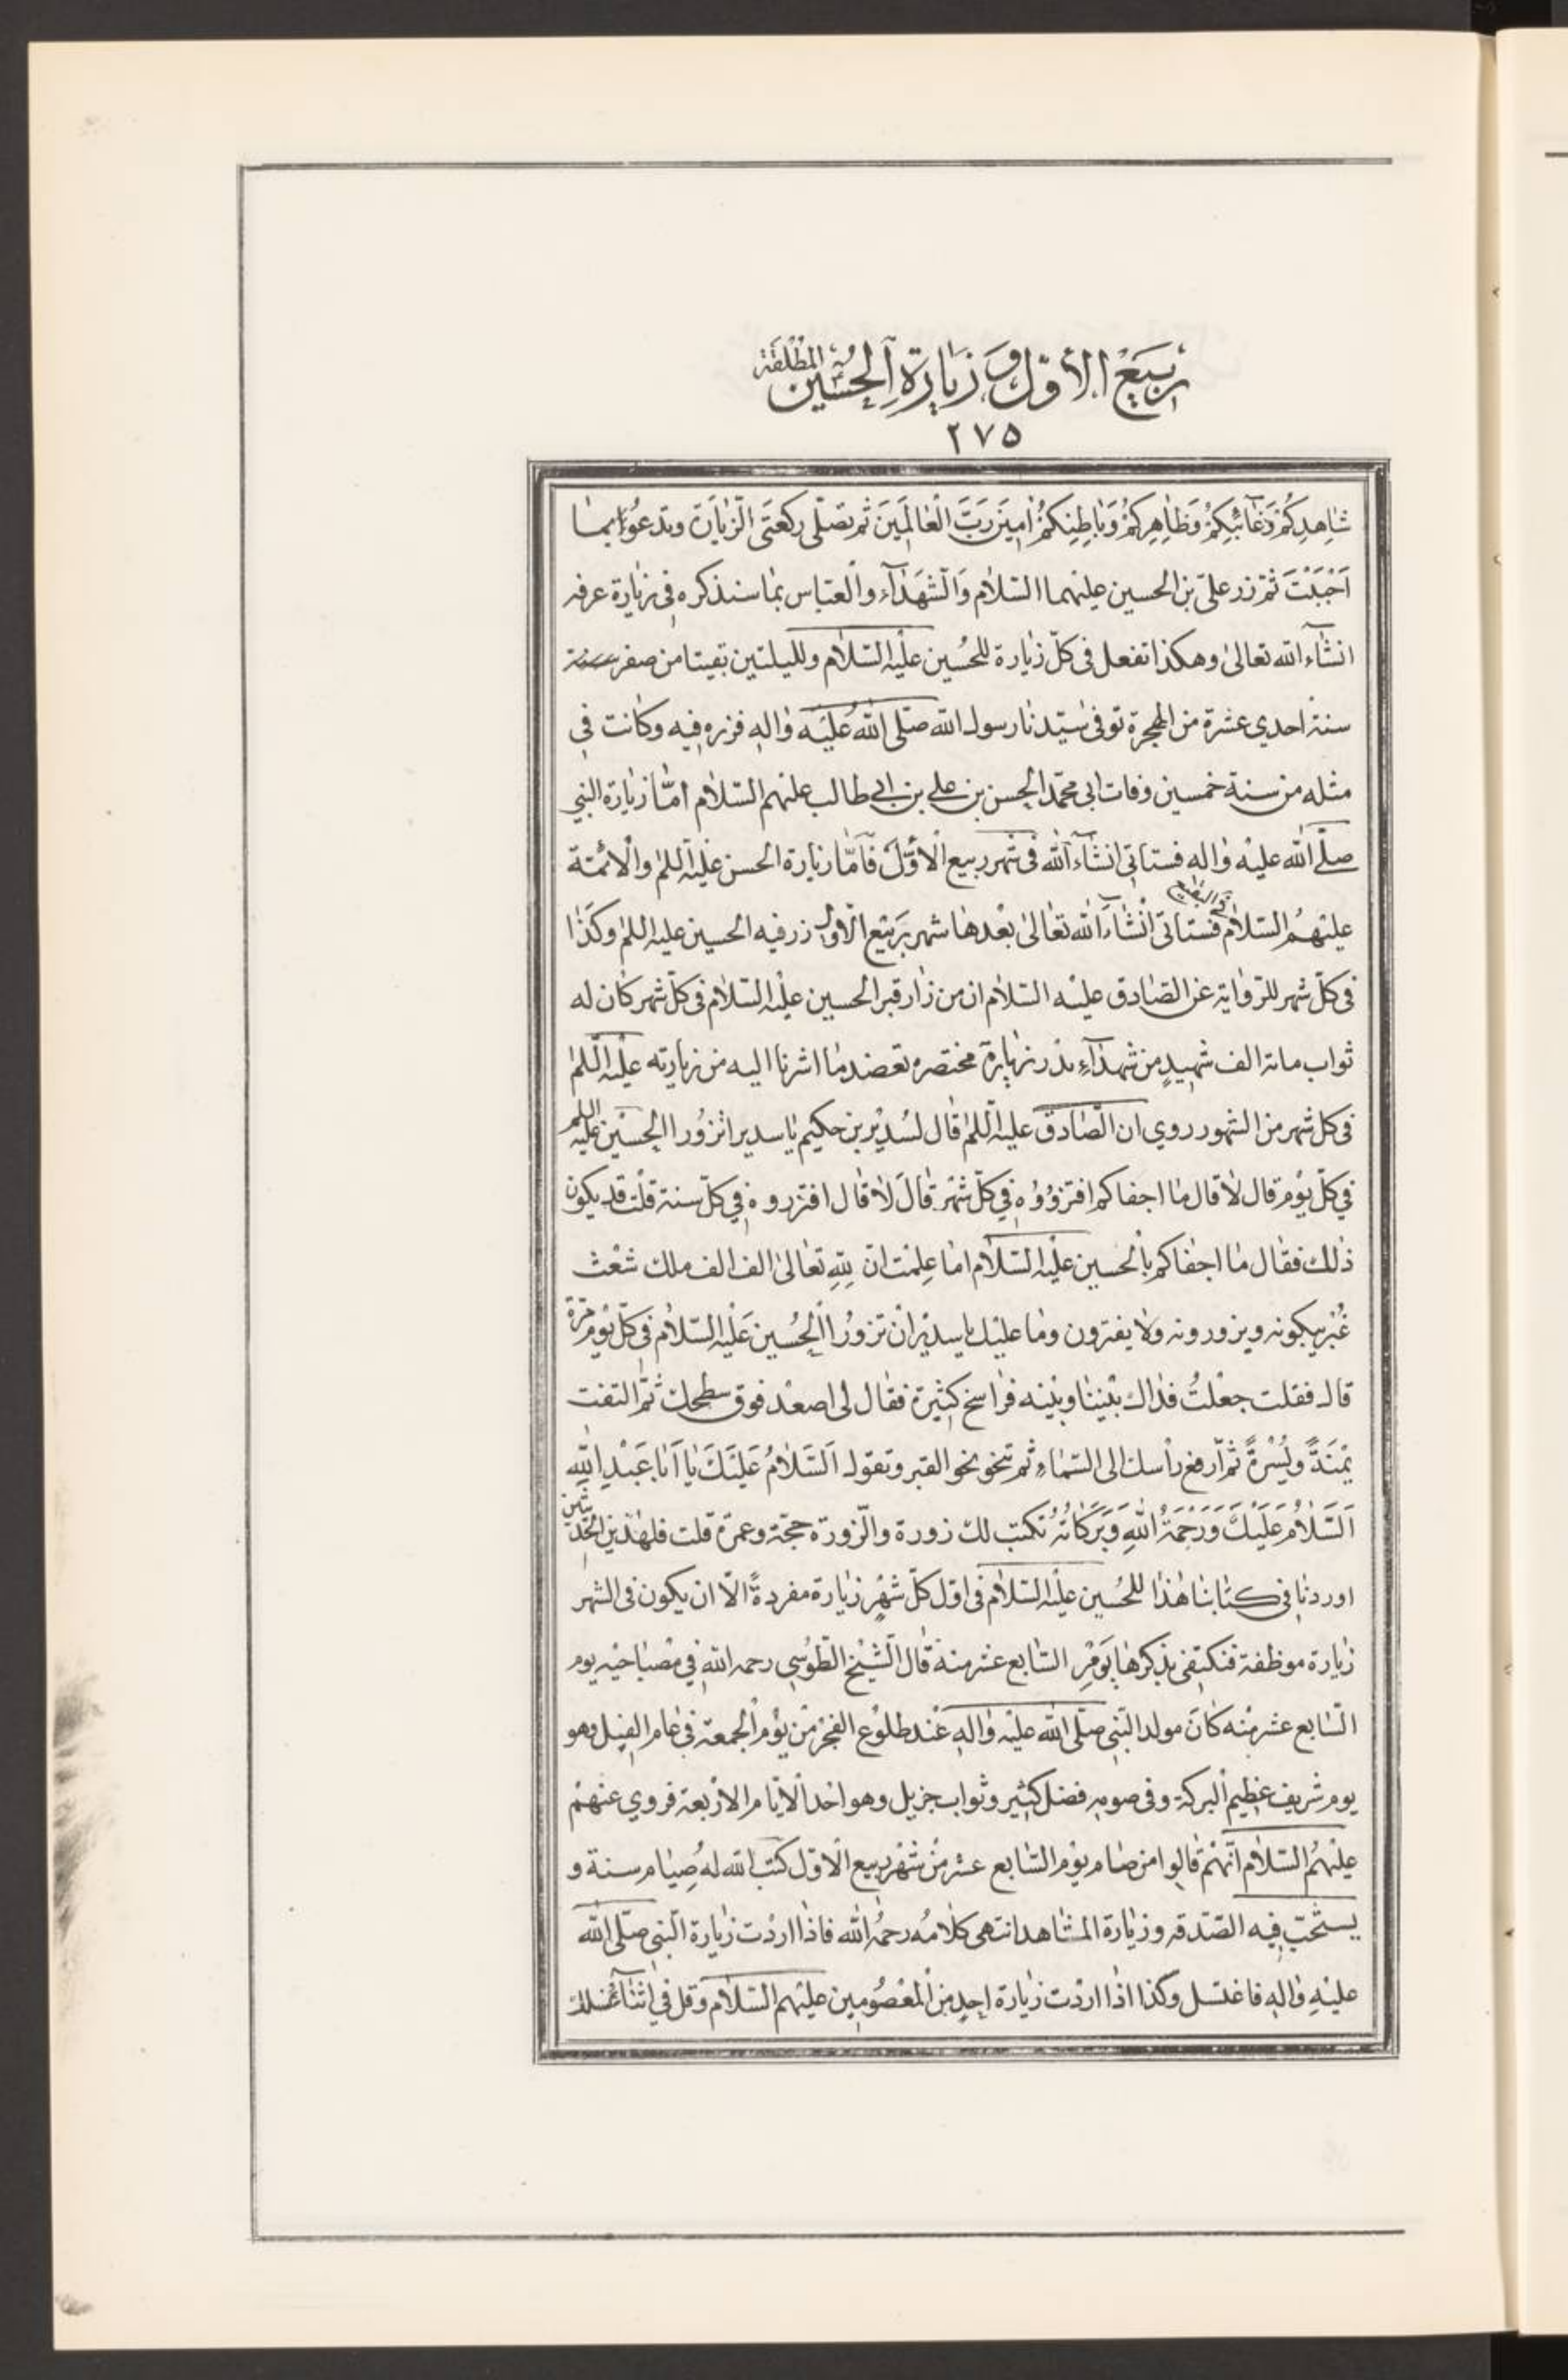 ربيع الأول و زيارة الحسين المطلقة
٢٧٥
شاهدكم وغائبكم وظاهركم وباطنكم امين رب العالمين ثم تصلى ركعتى الزيارة وتدعو بما
احببت ثم زر على بن الحسين عليهما السلام والشهداء والعباس بما سنذكره فى زيارة عرفه
انشاء الله تعالى وهكذا تفعل فى كل زيارة للحسين عليه السلام ولليلتين بقيتا من صفر سنة
سنة احدي عشرة من الهجرة توفى سيدنا رسول الله صلى الله عليه واله فزره فيه وكانت في
مثله من سنة خمسين وفات ابى محمد الحسن بن على بن ابى طالب عليهم السلام امّا زيارة النبي
صلى الله عليه واله فستاتي انشاء الله فى شهر ربيع الأول فأمّا زيارة الحسن عليه السلم والأئمة
بالبقيع
عليهم السلام فستاتى انشاء الله تعالى بعدها شهر ربيع الاول زر فيه الحسين عليه السلم وكذا
فى كل شهر للرواية عن الصادق عليه السلام ان من زار قبر الحسين عليه السلام فى كل شهر كان له
ثواب مائة الف شهيد من شهداء بدر زيارة مختصره تعضد ما اشرنا اليه من زيارته عليه السلم
فى كل شهر من الشهور روي ان الصادق عليه السلم قال لسدير بن حكيم يا سدير اتزور الحسين عليه السلم
في كل يوم قال لا قال ما اجفاكم افتزوروه في كل شهر قال لا قال افتزروه في كل سنة قلت قد يكون
ذلك فقال ما اجفاكم بالحسين عليه السلام اما علمت ان لله تعالى الف الف ملك شعث
غبر يبكونه ويزورونه ولا يفترون وما عليك يا سدير ان تزور الحسين عليه السلام في كل يوم مرة
قال فقلت جعلت فداك بيننا وبينه فراسخ كثيرة فقال لى اصعد فوق سطحك ثم التفت
يمنة ويسرة ثم ارفع رأسك الى السماء ثم تنحو نحو القبر وتقول السلام عليك يا ابا عبد الله
السلام عليك ورحمة الله وبركاته تكتب لك زورة والزورة حجة وعمرة قلت فلهذين الحديثين
اوردنا فى كتابنا هذا للحسين عليه السلام فى اول كل شهر زيارة مفردة الا ان يكون فى الشهر
زيارة موظفة فنكتفى بذكرها يوم السابع عشر منه قال الشيخ الطوسي رحمه الله في مصباحيه يوم
السابع عشر منه كان مولد النبى صلى الله عليه واله عند طلوع الفجر من يوم الجمعة في عام الفيل وهو
يوم شريف عظيم البركة وفى صومه فضل كثير وثواب جزيل وهو احد الايام الاربعة فروي عنهم
عليهم السلام انهم قالوا من صام يوم السابع عشر من شهر ربيع الاول كتب الله له صيام سنة و
يستحب فيه الصدقه وزيارة المشاهد انتهى كلامه رحمه الله فاذا اردت زيارة النبى صلى الله
عليه واله فاغتسل وكذا اذا اردت زيارة احد من المعصومين عليهم السلام وقل في اثناء غسلك